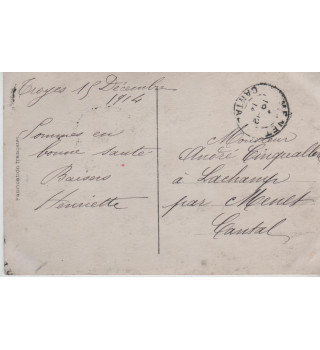 Troyes 15 Décembre
1914
Sommes en
bonne santé
Baisons
Henriette
MENET
CANTAL
Monsieur
André
à Lachamp
par Menet
Cantal